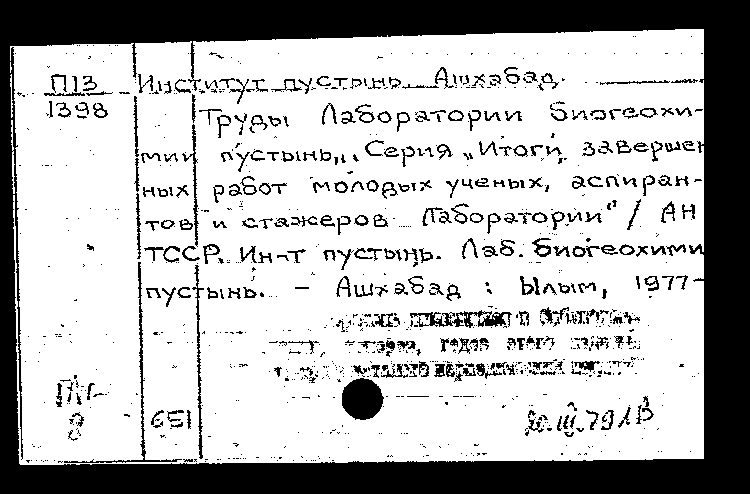 П13 Институт пустынь. Ашхабад.
1398 Труды Лаборатории биогеохи-
мии пустынь,,. Серия „Итоги завершен
ных работ молодых ученых, аспиран-
тов и стажеров Лаборатории" / АН
ТССР. Ин-т пустынь. Лаб. биогеохими
пустынь. — Ашхабад : Ылым, 1977-
годов этого
8 651